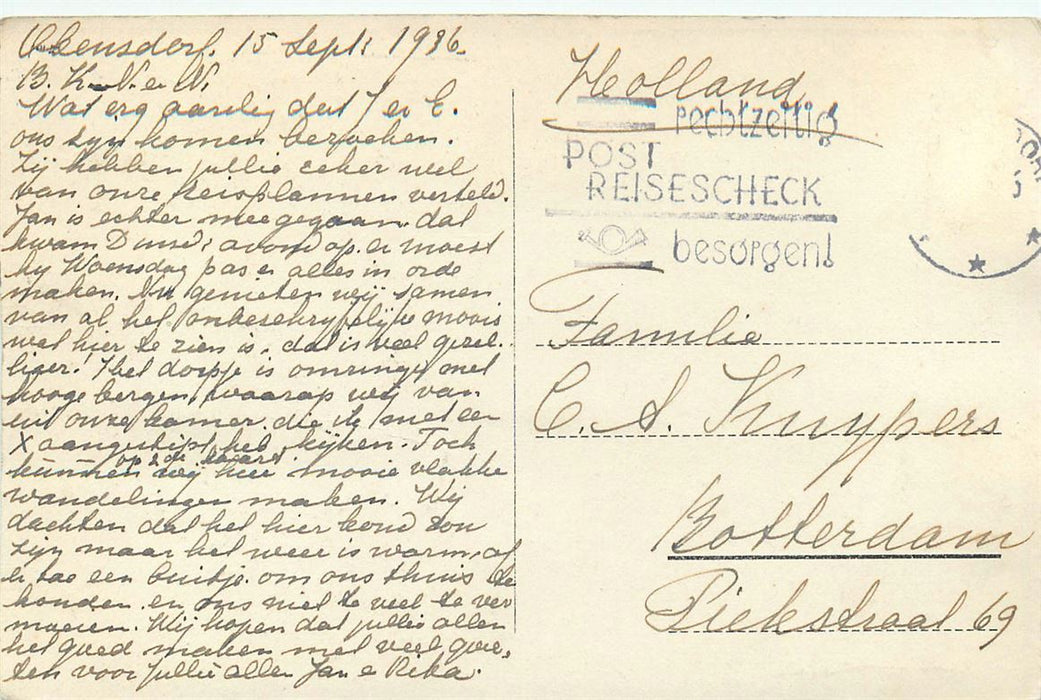 15 Sept. 1936
B. K. N. e N.
Wat erg aardig dat J en E.
ons zijn komen bezoeken.
Zij hebben jullie zeker wel
van onze reisplannen verteld.
Jan is echter meegegaan. dat
kwam Dinsd: avond op. er moest
hij Woensdag pas e alles in orde
maken. Nu genieten wij samen
van al het onbeschryfelijke moois
wat hier te zien is, dat is veel gezel-
liger. 't het dorpje is omringd met
hooge bergen, waarop wij van
uit onze kamer. die ik met een
X aangestipt heb kijken. Toch
op 2de kaart
kunnen wij hier mooie vlakke
wandelingen maken. Wij
dachten dat het hier koud zou
zijn maar het weer is warm, af
en toe een buitje. om ons thuis te
houden en ons niet te veel te ver
moeien. Wij hopen dat jullie allen
het goed maken met veel groe-
ten voor jullie allen Jan e Rika.
Holland
rechtzeitig
POST
REISESCHECK
besorgen!
Familie
C. A. Kuypers
Rotterdam
Piekstraat 69